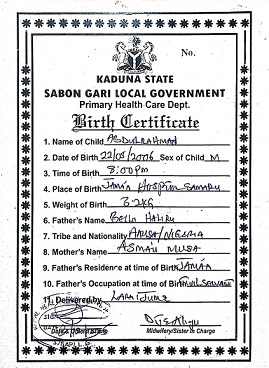 No.
KADUNA STATE
SABON GARI LOCAL GOVERNMENT
Primary Health Care Dept.
Birth Certificate
1. Name of Child ABDULRAHMAN
2. Date of Birth 22/05/2006 Sex of Child M
3. Time of Birth 8:00pm
4. Place of Birth Jama'a Hospital Samaru
5. Weight of Birth 3.2KG
6. Father's Name Bello Haliru
7. Tribe and Nationality HAUSA/NIGERIA
8. Mother's Name ASMA'U MUSA
9. Father's Residence at time of Birth JAMA'A
10. Father's Occupation at time of Birth CIVIL SERVANT
11. Delivered by LARAI JUME
Midwifery/Sister in Charge